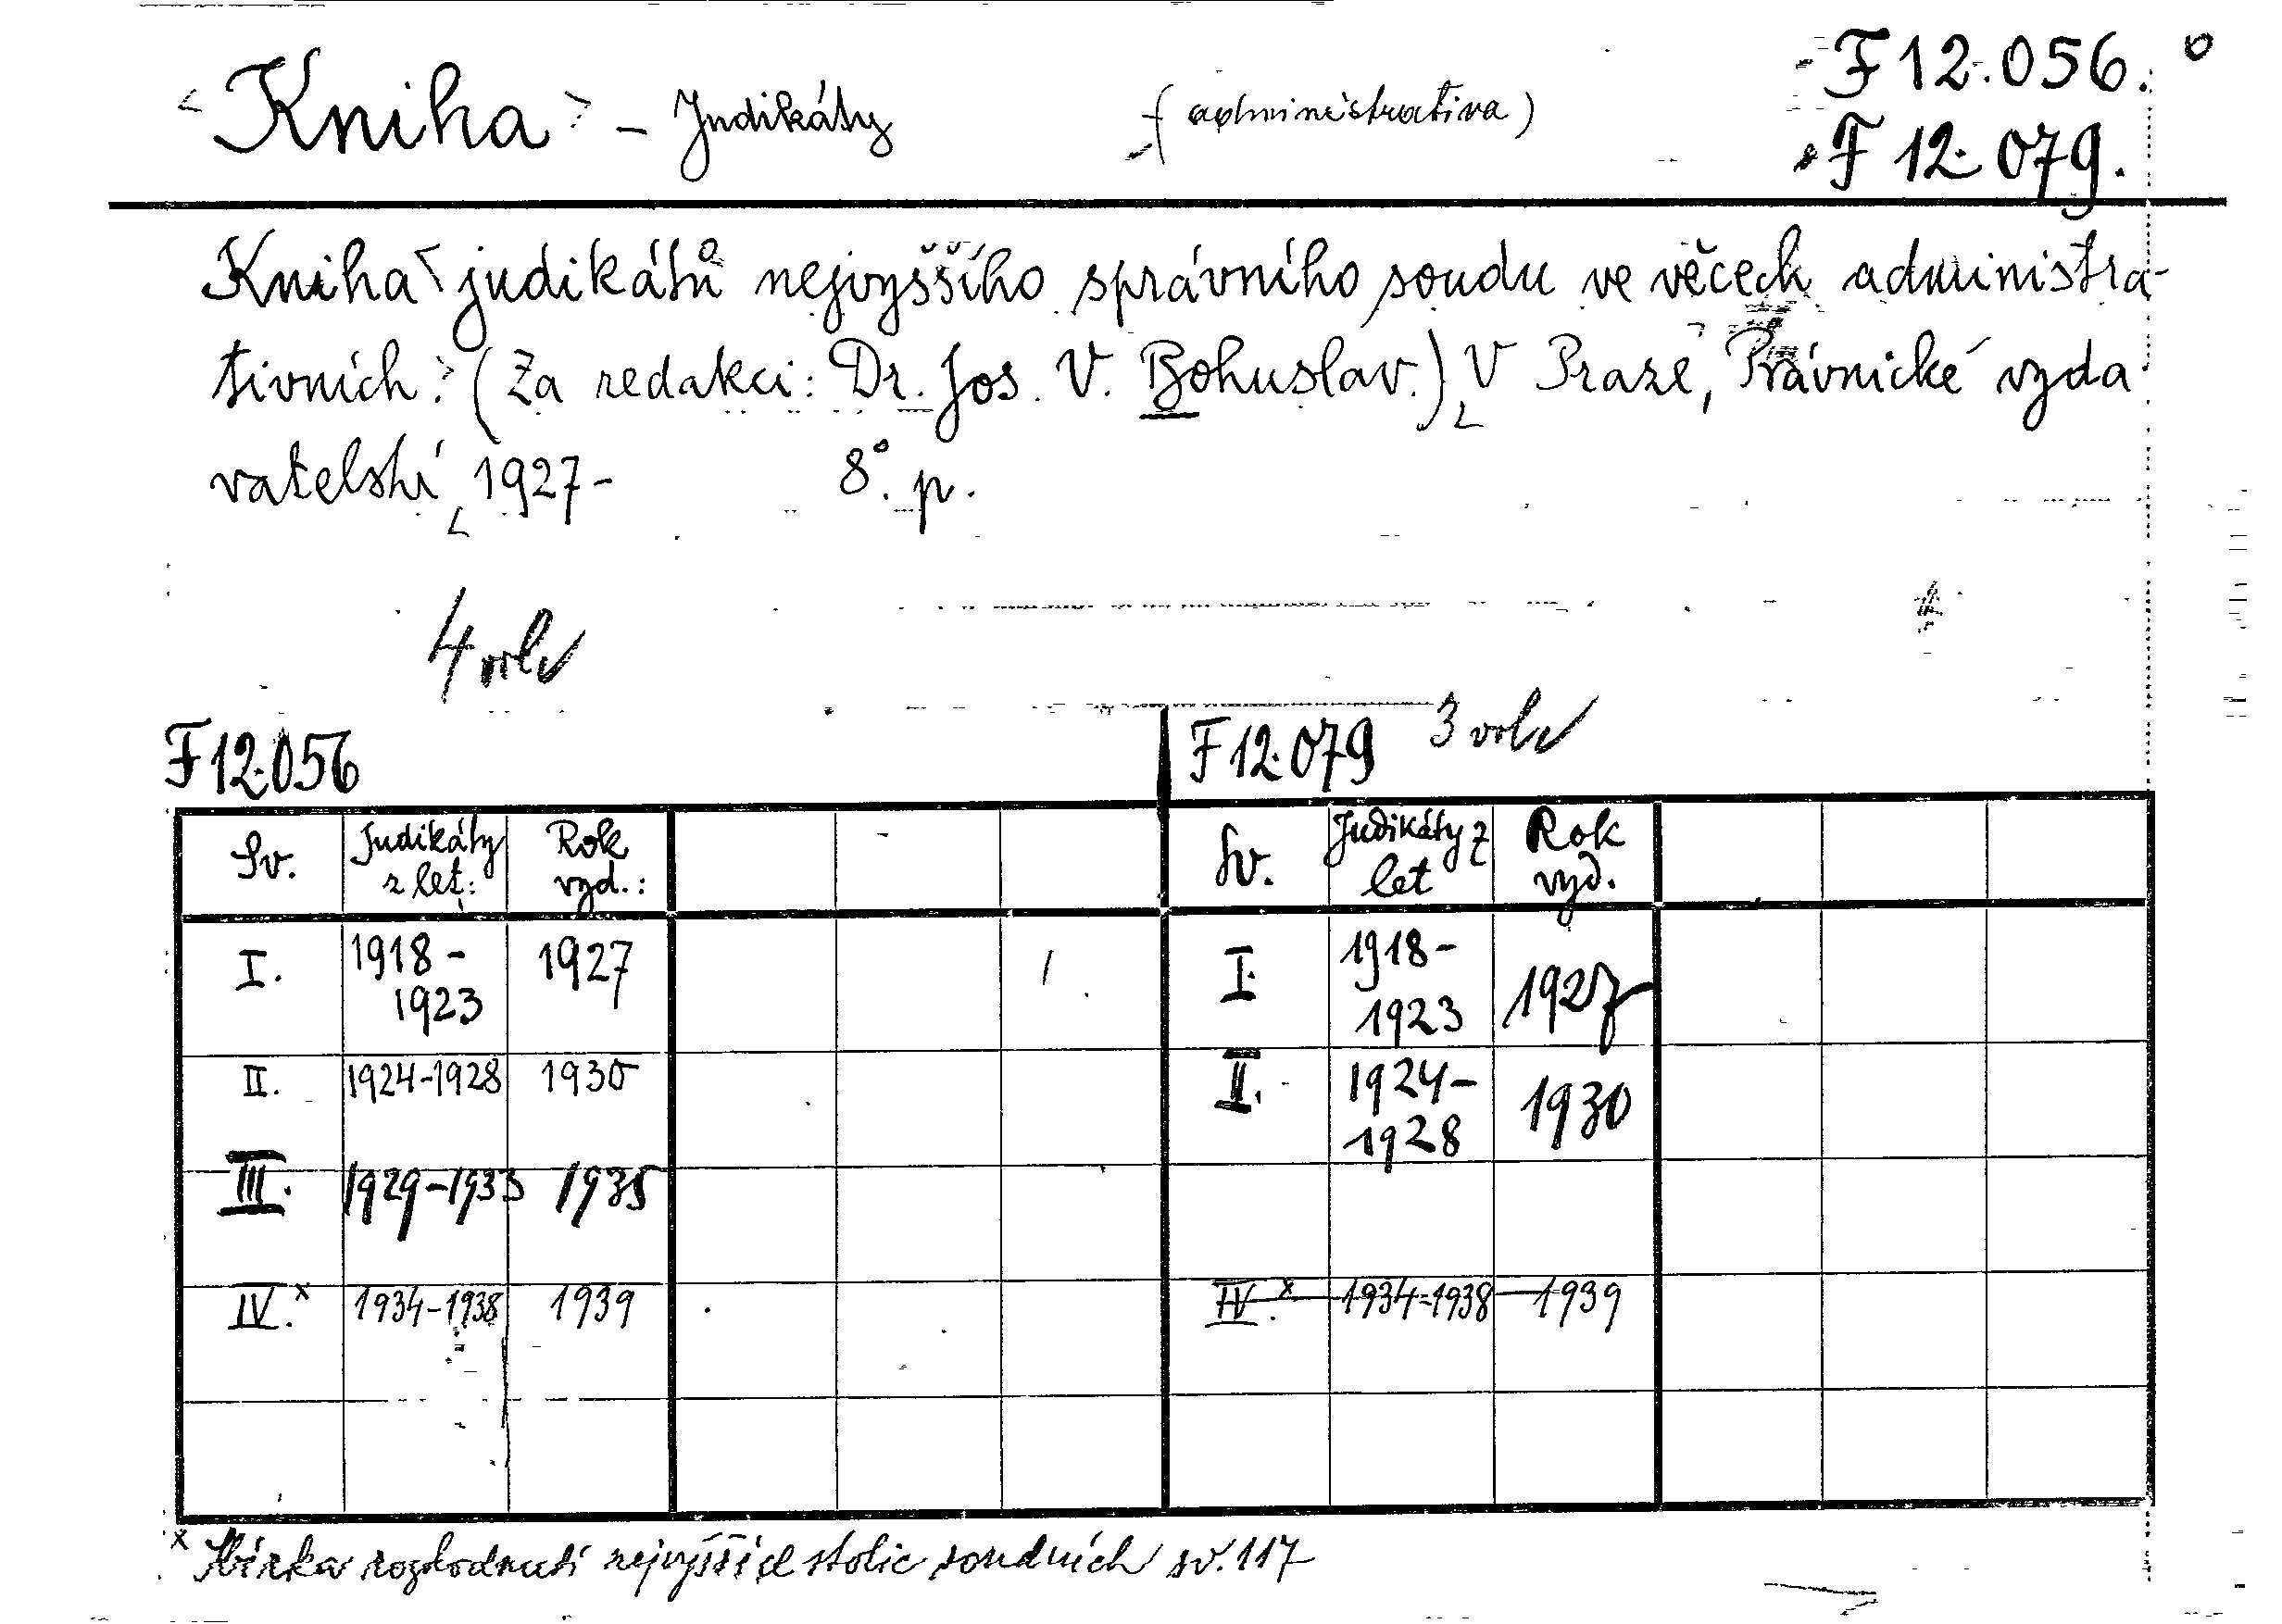 ‹Kniha› – Judikáty (administrativa) F 12.056.
F 12.079.
Kniha judikátů nejvyššího správního soudu ve věcech administra-
tivních. (Za redakci: Dr. Jos. V. Bohuslav.) V Praze, Právnické vyda
vatelství, 1927- 8°. p.
4 vol
F 12.056 F 12.079 3 vol
Sv. Judikáty z let: Rok vyd.: Sv. Judikáty z let Rok vyd.
I. 1918-1923 1927 I. 1918-1923 1927
II. 1924-1928 1930 II. 1924-1928 1930
III. 1929-1933 1935
IV.x 1934-1938 1939 IV.x 1934-1938 1939
x Sbírka rozhodnutí nejvyšších stolic soudních sv. 117